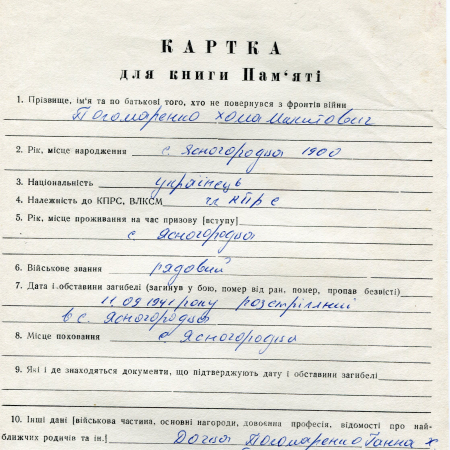 КАРТКА
для книги Пам'яті
1. Прізвище, ім'я та по батькові того, хто не повернувся з фронтів війни
Пономаренко Хома Микитович
2. Рік, місце народження с. Ясногородка 1900
3. Національність українець
4. Належність до КПРС, ВЛКСМ чл. КПРС
5. Рік, місце проживання на час призову [вступу]
с Ясногородка
6. Військове звання рядовий
7. Дата і обставини загибелі (загинув у бою, помер від ран, помер, пропав безвісті)
11 09 1941 року розстріляний
в с. Ясногородка
8. Місце поховання с Ясногородка
9. Які і де знаходяться документи, що підтверджують дату і обставини загибелі
10. Інші дані [військова частина, основні нагороди, довоєнна професія, відомості про най-
ближчих родичів та ін.] Дочка Пономаренко Ганна Х